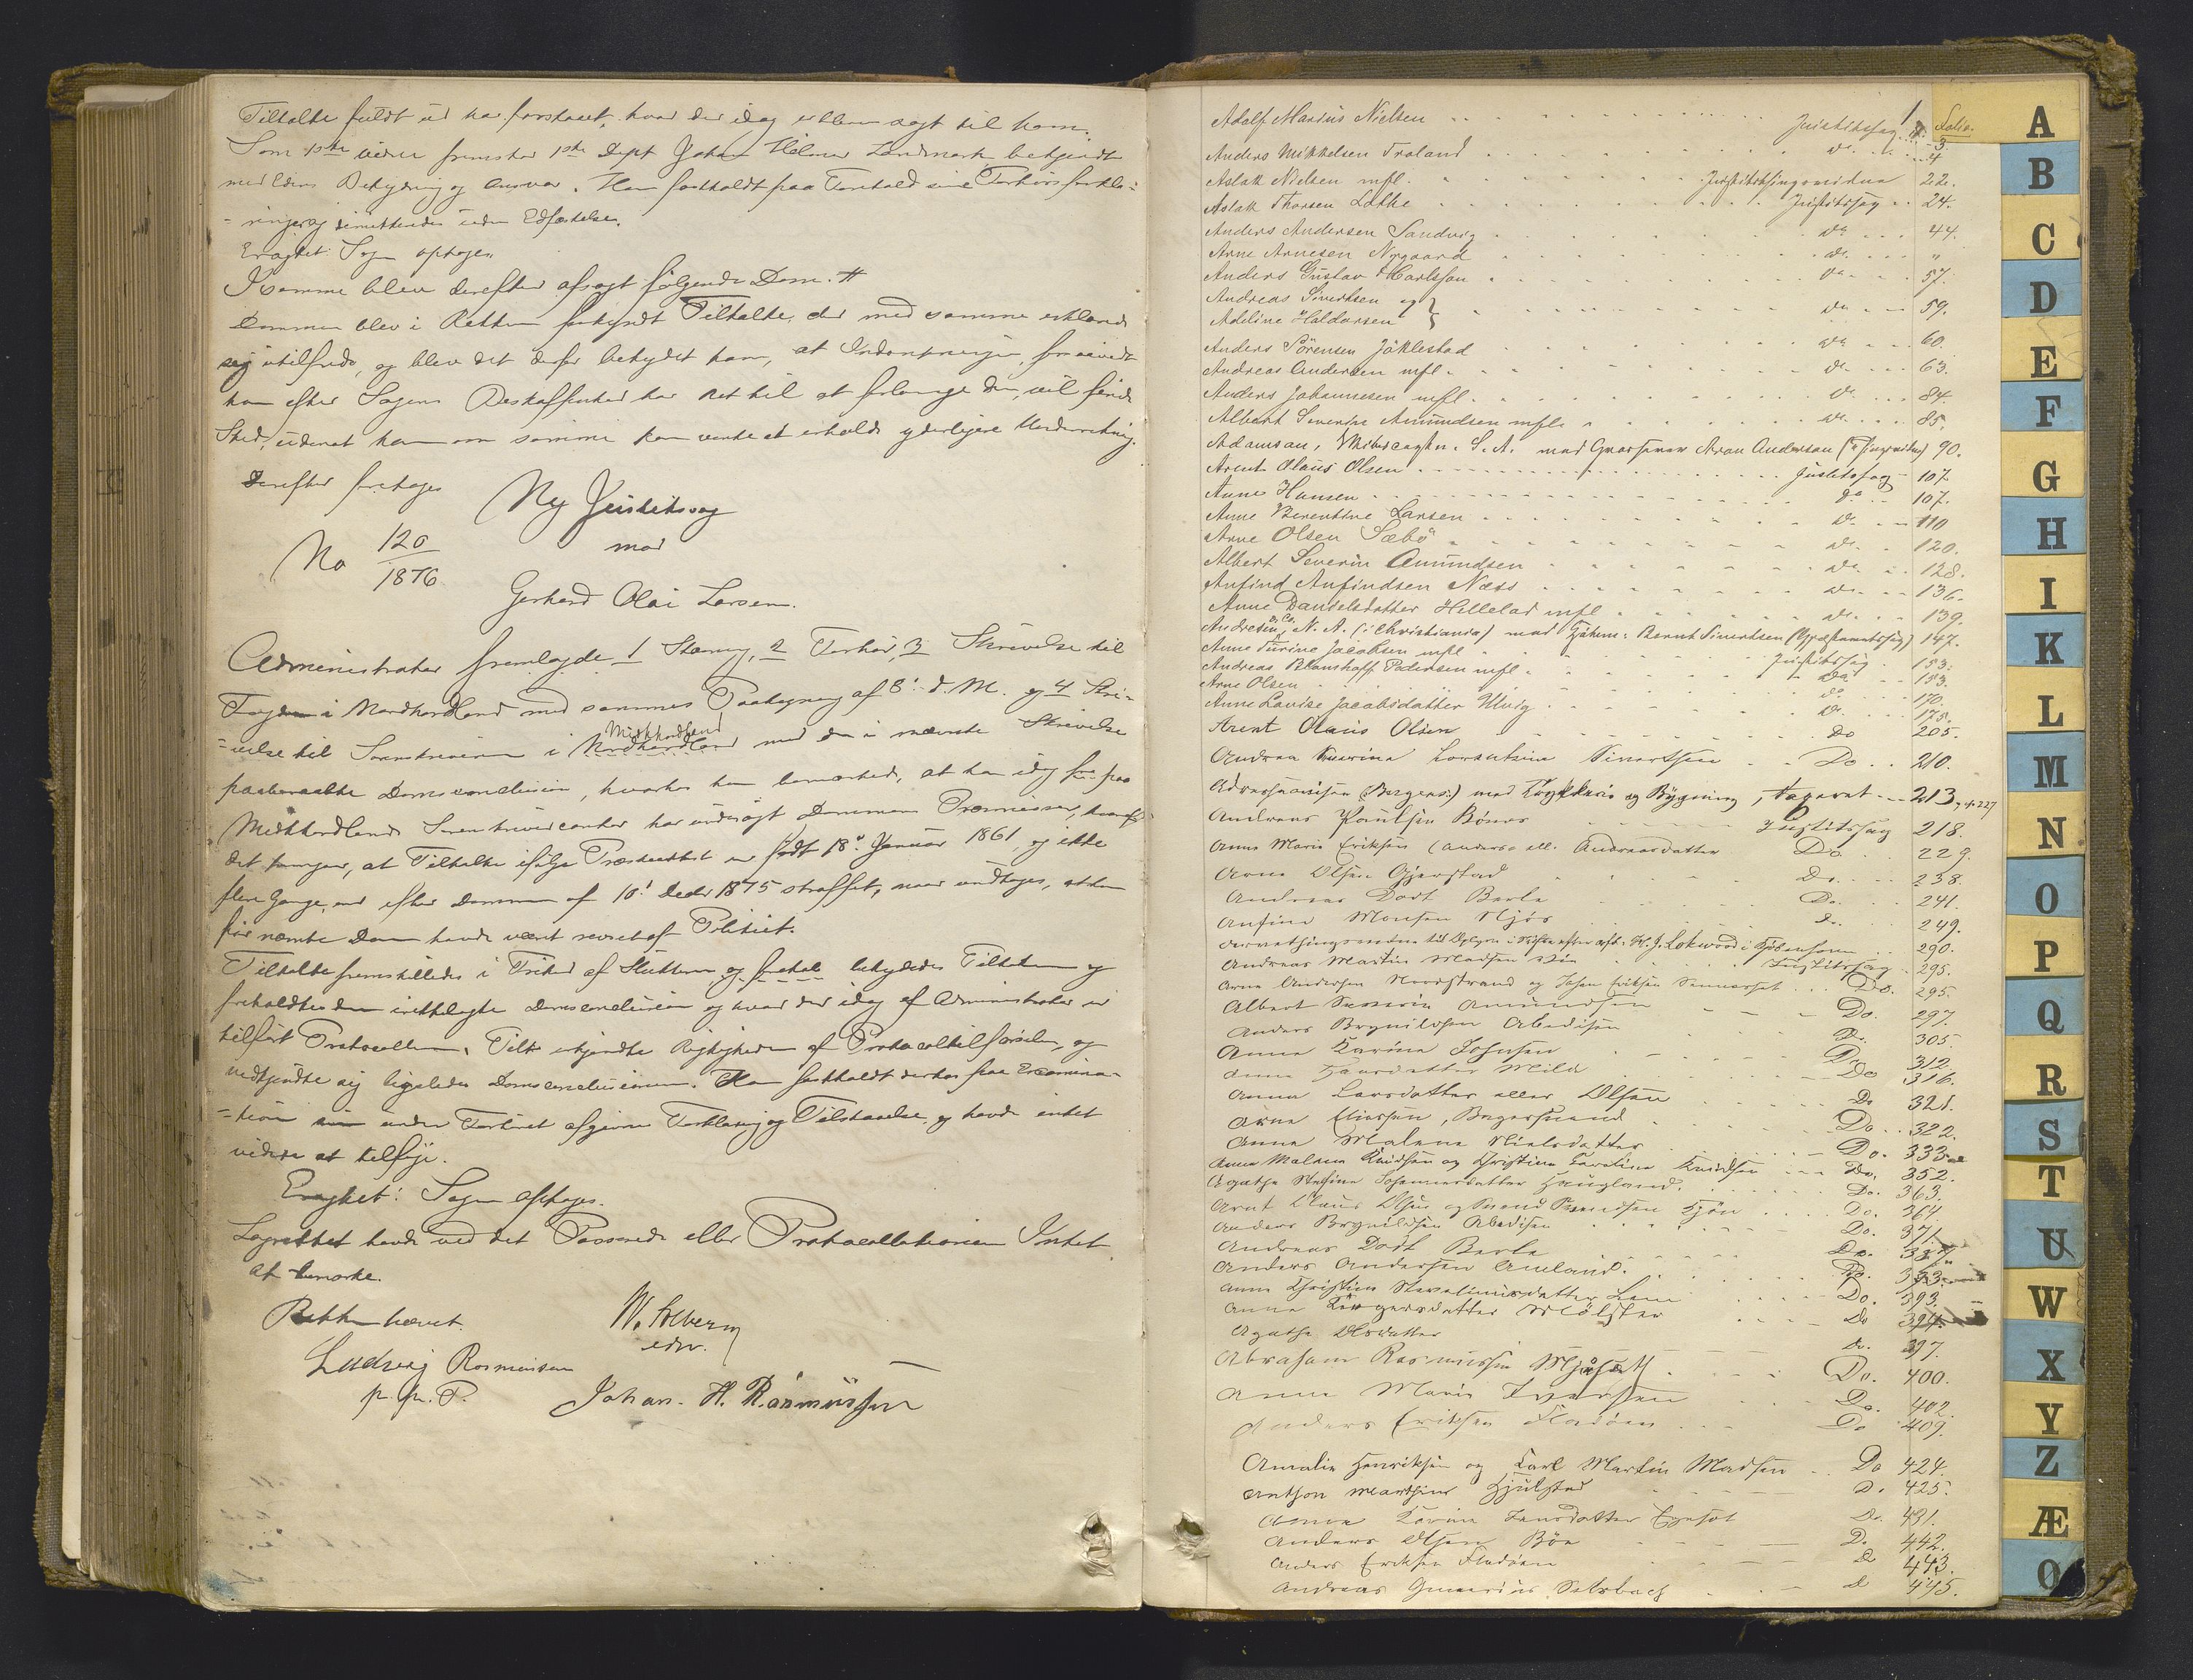 Tiltalte fuldt ud har forstaaet, hvad der idag er bleven sagt til ham.
Som 1ste Vidne fremstod 1ste Dept Johan Hilmar Landmark, bekjendt
med Edens Betydning og Ansvar. Han fastholdt paa Forehold sine Forhørsforkla=
=ringer og dimitteredes uden Edfæstelse.
Eragtet: Sagen optages.
I samme blev derefter afsagt følgende Dom. #
Dommen blev i Retten forkyndt Tiltalte, der med samme erklærede
sig utilfreds, og blev det derfor betydet ham, at Indankningen, forsaavidt
han efter Sagens Beskaffenhed har Ret til at forlange den, vil finde
Sted, uden at han om samme kan vente at erholde yderligere Underretning.
Derefter foretoges
Ny Justitssag
No 120/1876
mod
Gerhard Olai Larsen.
Administrator fremlagde 1 Stævning, 2 Forhør, 3 Skrivelse til
Fogden i Nordhordland med sammes Paategning af 8' d. M. og 4 Skri=
=velse til Sorenskriveren i Nordhordland Midthordland med den i nævnte Skrivelse
paaberaabte Domsconclusion, hvorhos han bemærkede, at han idag paa
Midthordlands Sorenskrivercontor har undersøgt Dommens Præmisser, hvoraf
det fremgaar, at Tiltalte ifølge Præsteattest er født 18' Januar 1861, og ikke
flere Gange, end efter Dommen af 10' Decbr 1875 straffet, naar undtages, at han
før nævnte Dom havde været revset af Politiet.
Tiltalte fremstilledes i Frihed af Slutteren og foretol betydedes Tiltalen og
foreholdtes den irettelagte Domsconclusion og hvad der idag af Administrator er
tilført Protocollen. Tilt erkjendte Rigtigheden af Protocoltilførselen, og
vedkjendte sig ligeledes Domsconclusionen. Han fastholdt derhos paa Examina=
=tion sin under Forhøret afgivne Forklaring og Tilstaaelse og havde intet
videre at tilføje.
Eragtet: Sagen optages.
Lagrettet havde ved det Passerede eller Protocollationen Intet
at bemærke.
Retten hævet.
W. Solberg
edsv.
Ludvig Rasmussen
p. p. P.
Johan. H. Rasmussen
Adolf Marius Nielsen Justitssag Folio. 3
Anders Mikkelsen Troland do 4
Aslak Nielsen mfl. Justitsthingsvidne 22.
Aslak Thorsen Lothe Justitssag 24.
Anders Andersen Sandvig do 44.
Arne Arnesen Nygaard do "
Anders Gustav Karlsson do 57.
Andreas Sivertsen og }
Adeline Haldorsen } do 59.
Anders Sørensen Jøklestad do 60.
Andreas Andersen mfl. do 63.
Anders Johannesen mfl. do 84.
Albert Severin Amundsen mfl. do 85.
Adamsan, Skibscaptn. S. A. mod Grosserer Aron Andersan (Thingsvidne) 90.
Arent Olaus Olsen Justitssag 107
Anne Hansen do 107.
Anne Berentine Larsen do 110
Arne Olsen Sæbø do 120.
Albert Severin Amundsen do 128.
Anfind Anfindsen Næss do 136.
Anne Danielsdatter Hillelad mfl do 139.
Andresen & Co, N. A. (i Christiania) mod Bernt Sivertsen 147.
Anne Turine Jacobsen mfl Justitssag 153.
Andreas Blomhoff Pedersen mfl. do 153.
Arne Olsen do 170.
Anne Lovise Jacobsdatter Ulvig do 175.
Arent Olaus Olsen do 205.
Andrea Severine Lorentine Sivertsen Do 210.
Adresseavisen (Bergens) mod Trykkeri og Bygning, taxeret 213, & 227
Andreas Poulsen Bønes Justitssag 218.
Anne Marie Eriksen (Anders- ell. Andreasdatter Do 229.
Arne Olsen Gjerstad Do. 238.
Andreas Dodt Berle Do. 241.
Anfind Monsen Mjøs Do. 249.
H. J. Lokwood i Kjøbenhavn 290.
Andreas Martin Madsen Justitssag 295.
Arne Andersen Nordstrand og Johan Eriksen Do. 295.
Albert Severin Amundsen Do. 297.
Anders Brynildsen Abedisen Do. 305.
Anne Karine Johnsen Do 312.
Anne Hansdatter Milde Do 316.
Anna Larsdatter eller Olsen Do 321.
Arne Eliassen, Bøgersund Do. 322.
Anne Malene Nielsdatter Do. 333
Anne Malene Knudsen og Christine Caroline Knudsen Do. 352.
Agathe Stefine Johannesdatter Haugland. Do. 363.
Arnt Olaus Olsen og Svend Svendsen Kjøn Do. 364.
Anders Brynildsen Abedisen Do. 371.
Andreas Dodt Berle Do. 387.
Anders Andersen Amland. Do. 393.
Anne Christine Do. 393.
Anna Mølster Do 394.
Agathe Olsdatter Do. 397.
Abraham Rasmussen Mjaaset Do. 400.
Anne Marie Iversen Do. 402.
Anders Eriksen Fladøen Do 409.
Amalie Henriksen og Carl Martin Madsen Do 424.
Anthon Marthin Hjulstad D. 425.
Anne Karine Jansdatter Do. 431.
Anders Olsen Bøe D. 442.
Anders Eriksen Fladøen Do 443.
Andreas Gunerius Setsbach d 445.
A
B
C
D
E
F
G
H
I
K
L
M
N
O
P
Q
R
S
T
U
W
X
Y
Z
Æ
Ø